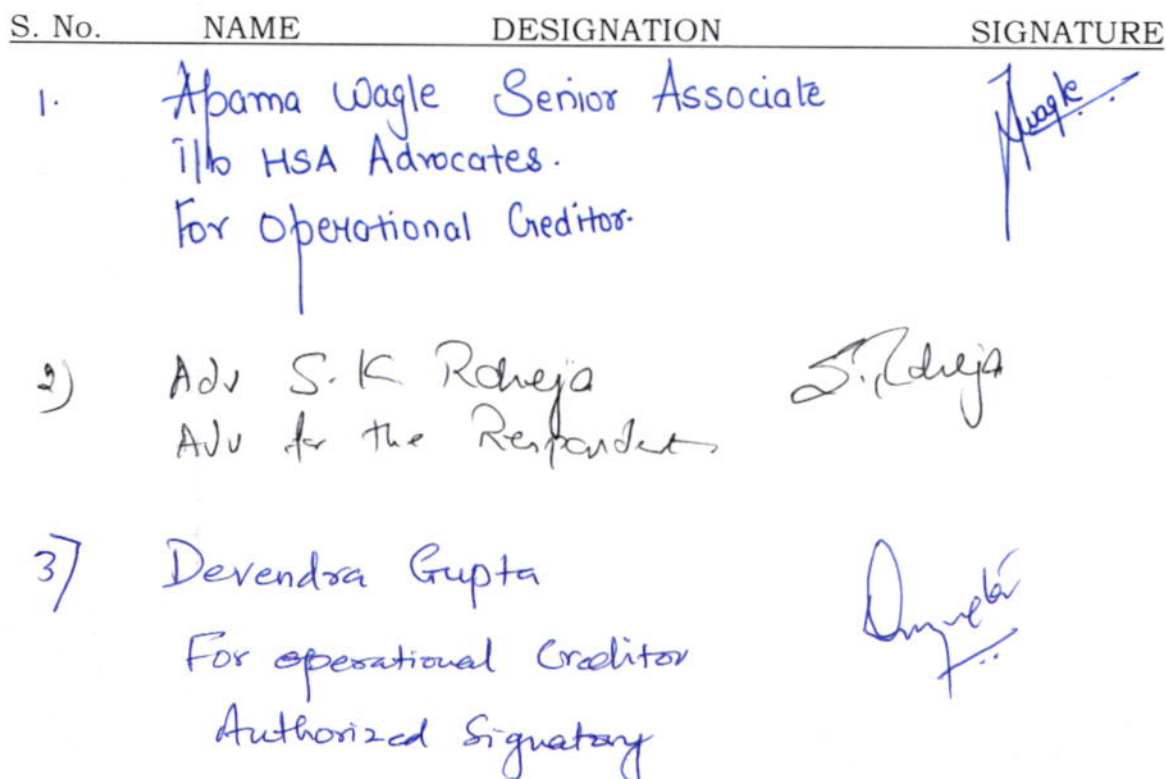 S. No. NAME DESIGNATION SIGNATURE
1. Aparna Wagle Senior Associate Awagle
i/b HSA Advocates.
For Operational Creditor.
2) Adv S. K Raheja S. Raheja
Adv for the Respondents
3) Devendra Gupta
For operational Creditor
Authorized Signatory